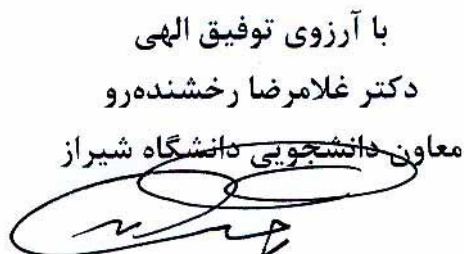 با آرزوی توفیق الهی
دکتر غلامرضا رخشنده‌رو
معاون دانشجویی دانشگاه شیراز